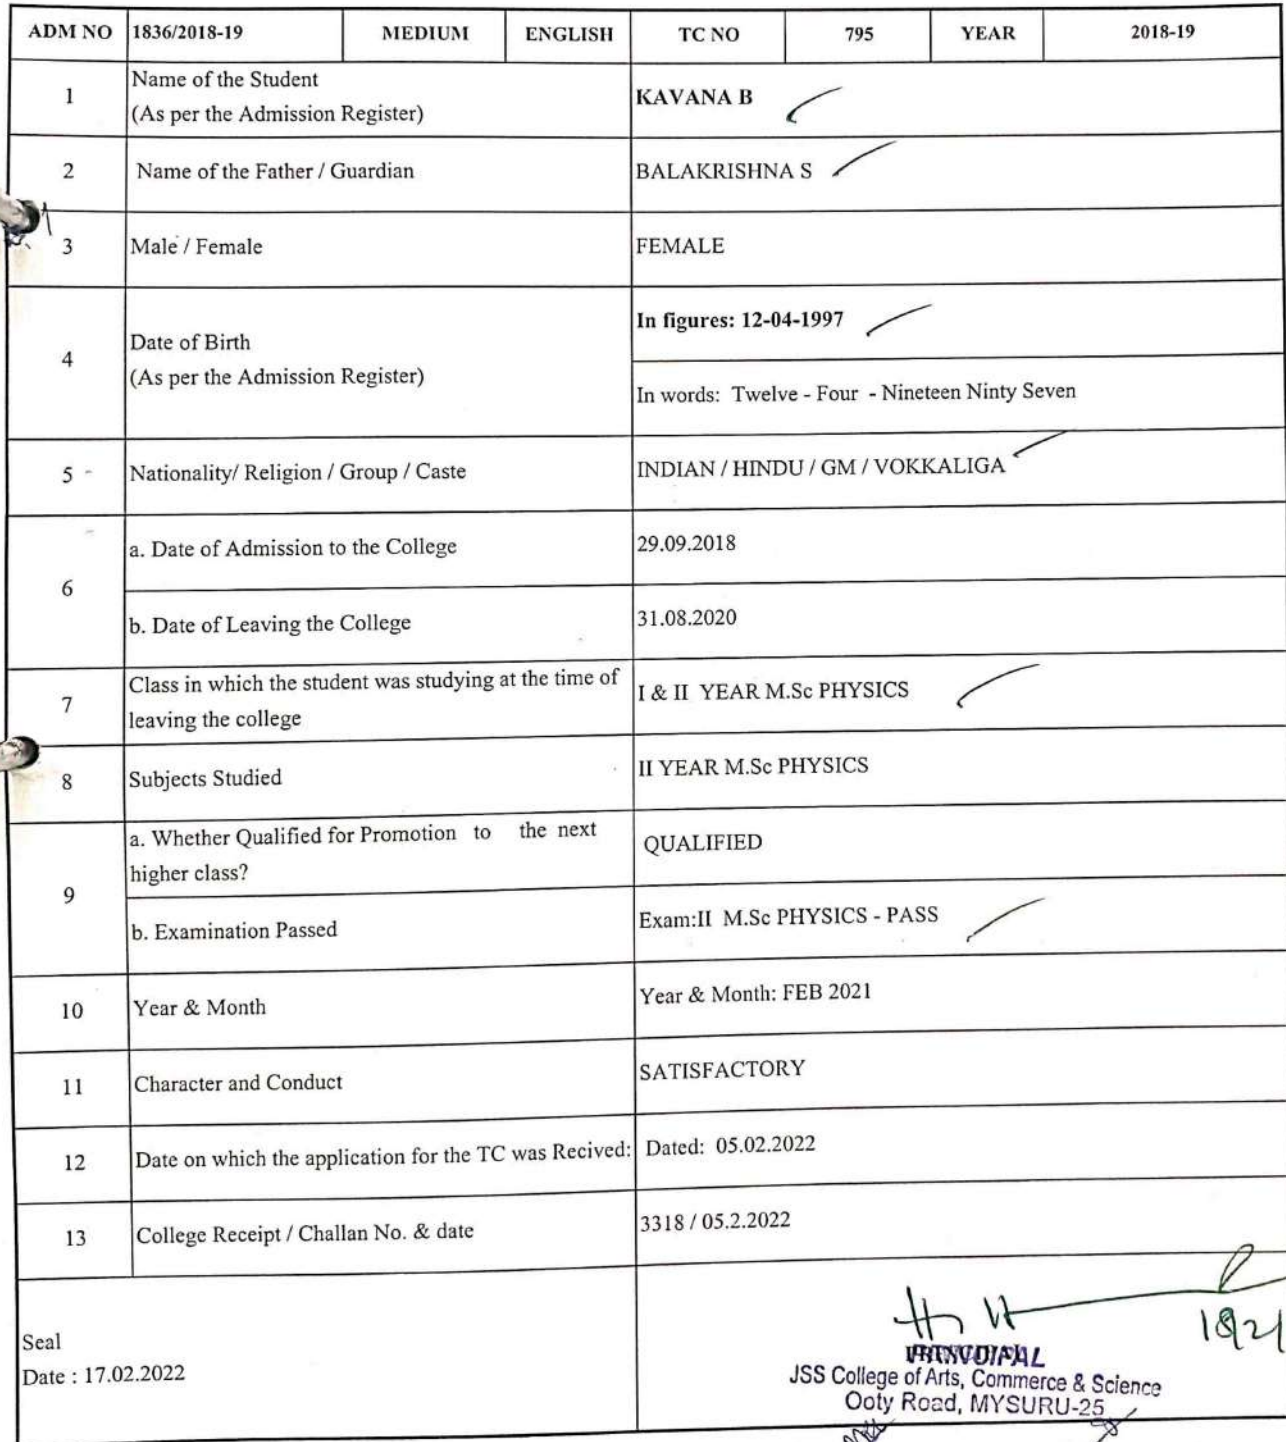 ADM NO 1836/2018-19 MEDIUM ENGLISH TC NO 795 YEAR 2018-19
1 Name of the Student
(As per the Admission Register) KAVANA B
2 Name of the Father / Guardian BALAKRISHNA S
3 Male / Female FEMALE
4 Date of Birth
(As per the Admission Register)
In figures: 12-04-1997
In words: Twelve - Four - Nineteen Ninty Seven
5 Nationality/ Religion / Group / Caste INDIAN / HINDU / GM / VOKKALIGA
6 a. Date of Admission to the College 29.09.2018
b. Date of Leaving the College 31.08.2020
7 Class in which the student was studying at the time of
leaving the college I & II YEAR M.Sc PHYSICS
8 Subjects Studied II YEAR M.Sc PHYSICS
9 a. Whether Qualified for Promotion to the next
higher class? QUALIFIED
b. Examination Passed Exam:II M.Sc PHYSICS - PASS
10 Year & Month Year & Month: FEB 2021
11 Character and Conduct SATISFACTORY
12 Date on which the application for the TC was Recived: Dated: 05.02.2022
13 College Receipt / Challan No. & date 3318 / 05.2.2022
Seal
Date : 17.02.2022
PRINCIPAL
JSS College of Arts, Commerce & Science
Ooty Road, MYSURU-25